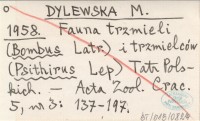 DYLEWSKA M.
1958. Fauna trzmieli
(Bombus Latr.) i trzmielców
(Psithirus Lep) Tatr Pols-
kich. – Acta Zool. Crac.
5, nr 3: 137-197.